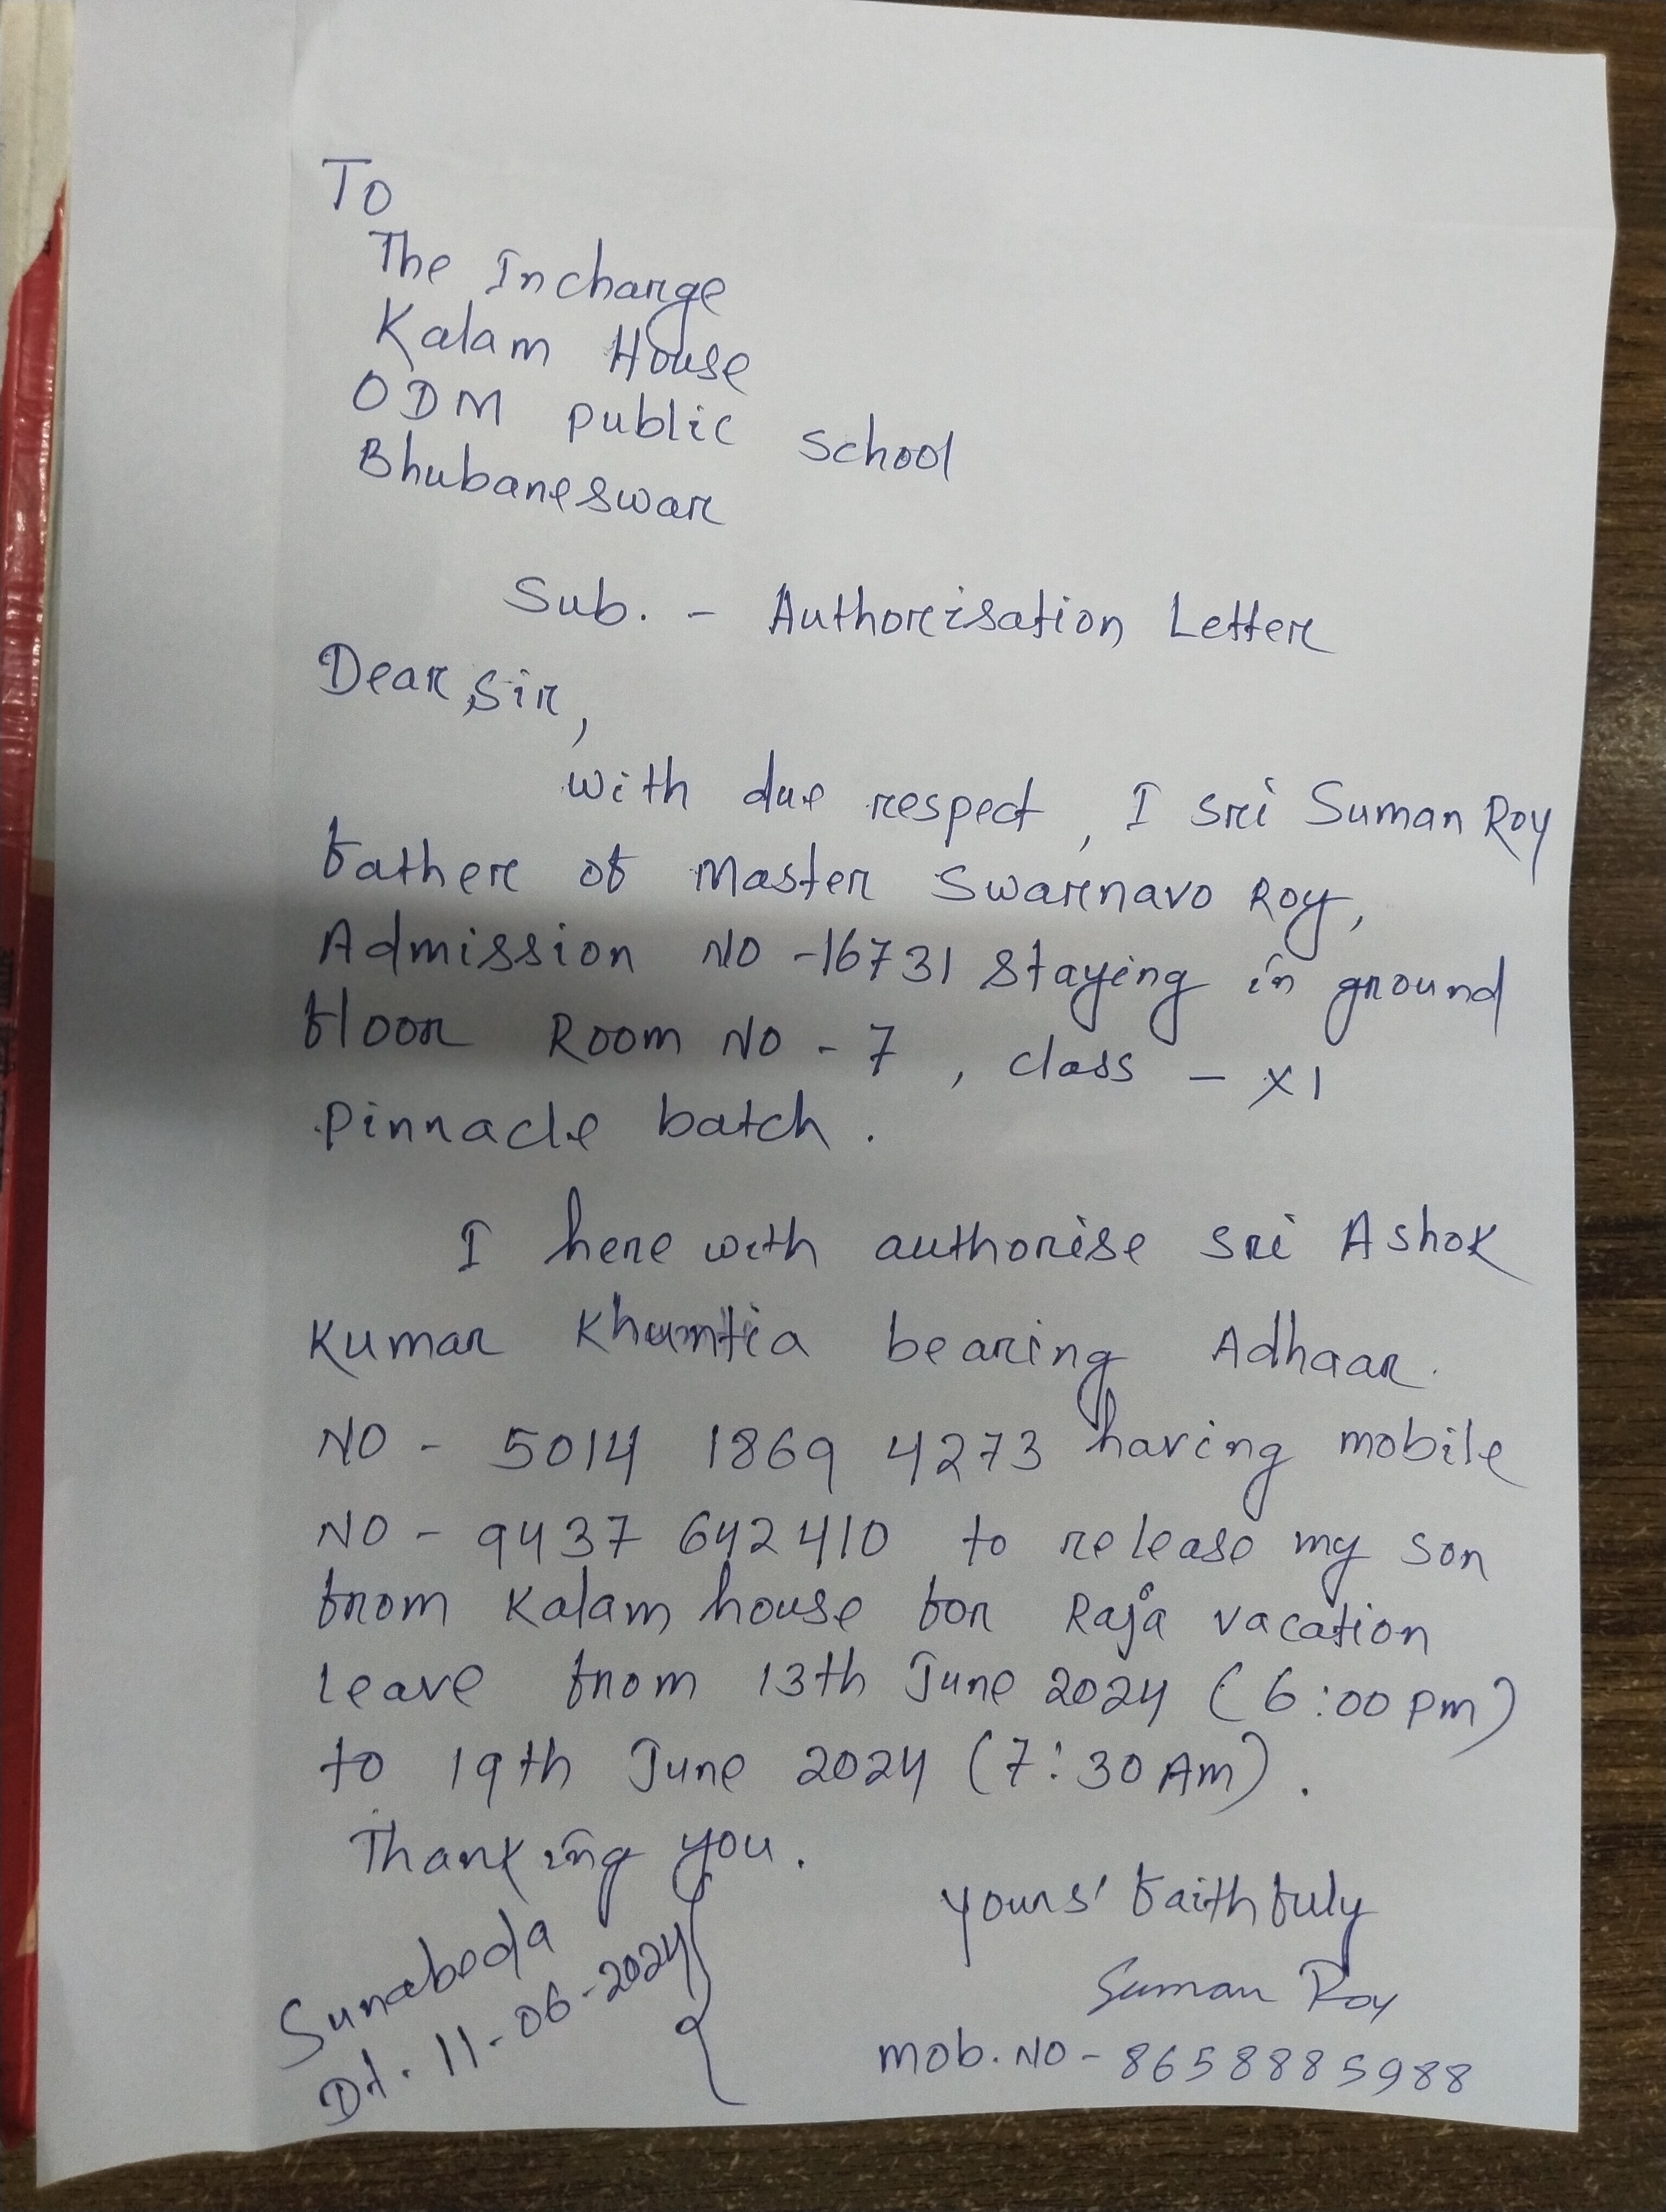 To
The Incharge
Kalam House
ODM public school
Bhubaneswar
Sub. - Authorisation Letter
Dear Sir,
with due respect, I sri Suman Roy
father of Master Swarnavo Roy,
Admission NO -16731 staying in ground
floor Room NO - 7, class - XI
Pinnacle batch.
I here with authorise sri Ashok
Kumar Khuntia bearing Adhaar.
NO - 5014 1869 4273 having mobile
NO - 9437 642410 to release my son
from Kalam house for Raja vacation
leave from 13th June 2024 (6:00 pm)
to 19th June 2024 (7:30 Am).
Thanking you.
yours' faithfuly
Suman Roy
mob. NO - 8658885988
Sunabeda
Dt. 11-06-2024